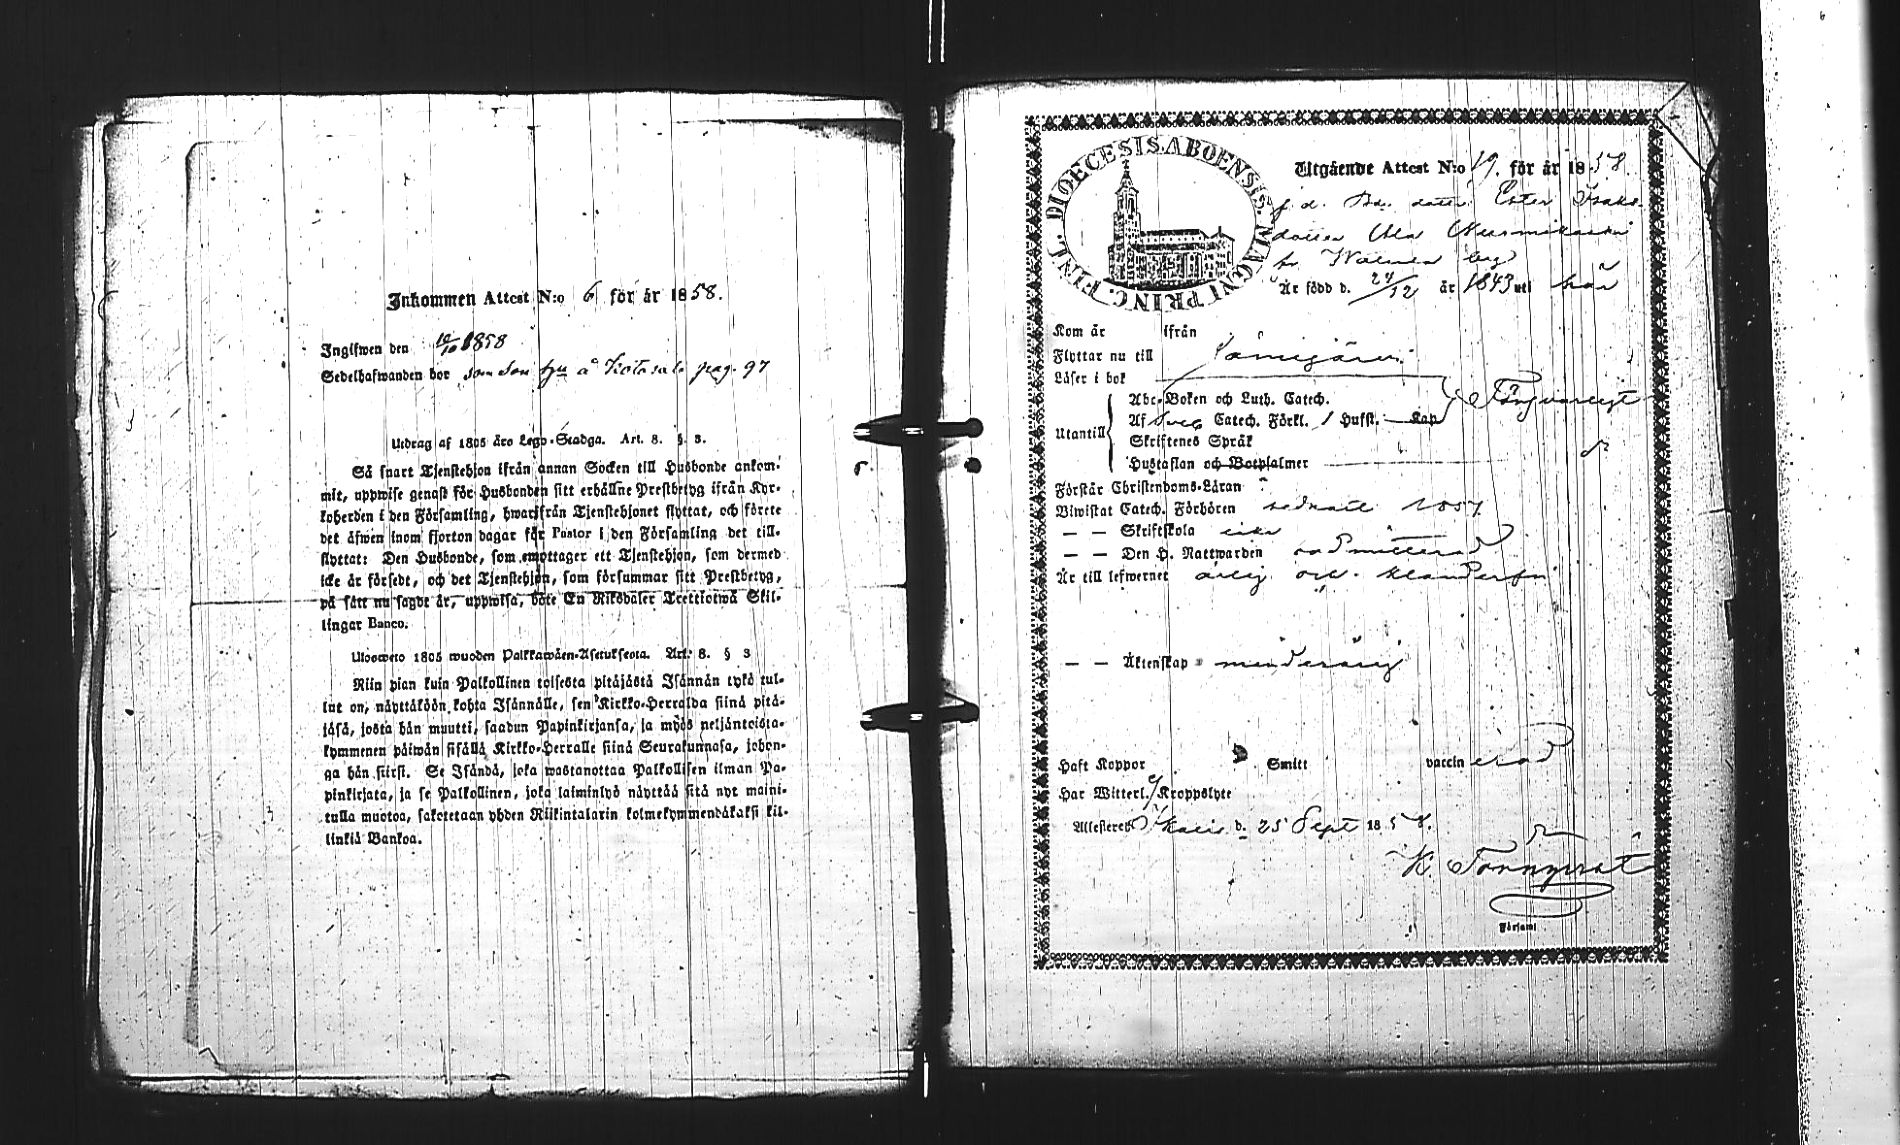 Inkommen Attest N:o 6 för år 1858.
Ingifwen den 10/10 1858
Sedelhafwanden bor som son på pag. 97
Utdrag af 1805 års Lego-Stadga. Art. 8. § 3.
Så snart Tjenstehjon ifrån annan Socken till Husbonde ankom-
mit, uppwise genast för Husbonden sitt erhållne Prestbetyg ifrån Kyr-
koherden i den Församling, hwarifrån Tjenstehjonet flyttat, och förete
det äfwen inom fjorton dagar för Pastor i den Församling det till-
flyttat: Den Husbonde, som emottager ett Tjenstehjon, som dermed
icke är försedt, och det Tjenstehjon, som försummar sitt Prestbetyg,
på sätt nu sagdt är, uppwisa, böte En Riksdaler Trettiotwå Skil-
lingar Banco.
Uloswето 1805 wuoden Palkkawäen-Asetuksesta. Art. 8. § 3
Niin pian kuin Palkollinen toisesta pitäjästä Isännän tykö tul-
lut on, näyttäköön kohta Isännälle, sen Kirkko-Herralda siinä pitä-
jäsä, josta hän muutti, saadun Papinkirjansa, ja myös neljäntoista-
kymmenen päiwän sisällä Kirkko-Herralle siinä Seurakunnasa, johon-
ga hän siirsi. Se Isändä, joka wastanottaa Palkollisen ilman Pa-
pinkirjata, ja se Palkollinen, joka laiminlyö näyttää sitä nyt maini-
tulla muotoa, sakotetaan yhden Riikintalarin kolmekymmendäkaksi kil-
linkiä Bankoa.
FINL. DIOECESIS. ABOENSIS. MAGNI PRINC.
Utgående Attest N:o 19. för år 1858
f. d. dotter Ester Isaks-
dotter
Är född d. 24/12 år 1843 uti här
Kom år ifrån
Flyttar nu till Jämijärvi
Läser i bok
Abc-Boken och Luth. Catech.
Utantill Af Sveb Catech. Förkl. / Hufst. — Kap försvarligt
Skriftenes Språk
Hustaflan och Botpsalmer
Förstår Christendoms-Läran
Biwistat Catech. Förhören sednast 1857
— — Skriftskola icke
— — Den H. Nattwarden oadmitterad
Är till lefwernet ärlig och klanderfri
— — Äktenskap minderårig
Haft Koppor Smitt vaccin erad
Har Witterl. Ej Kroppslyte
Attesteres d. 25 Sept 1858.
K. Törnqvist
Församl